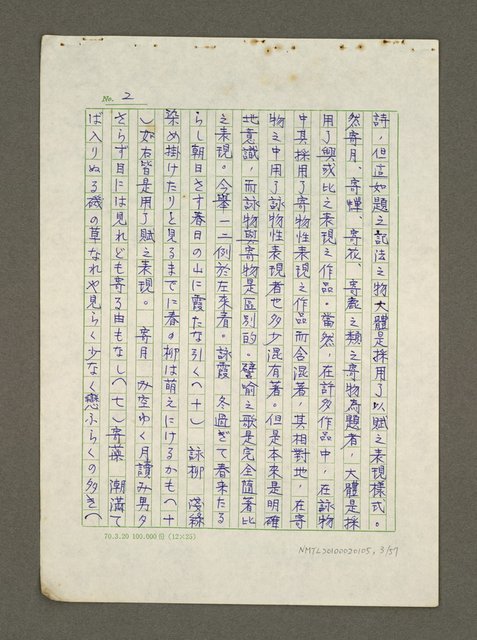 No. 2
詩，但這如題之記法之物大體是採用了以賦之表現樣式。
然寄月、寄煙、寄花、寄嶽之類之寄物為題者，大體是採
用了興或比之表現之作品。當然，在許多作品中，在詠物
中其採用了寄物性表現之作品而含混著，其相對地，在寄
物之中用了詠物性表現者也多少混有著。但是本來是明確
地意識，而詠物與寄物是區別的。譬喻之歌是完全隨著比
之表現。今舉一二例於左來看。詠霞　冬過ぎて春來たる
らし朝日さす春日の山に霞たな引く（十）　詠柳　淺綠
染め掛けたりと見るまでに春の柳は萌えにけるかも（十
）如右皆是用了賦之表現。　寄月　み空ゆく月讀み男夕
さらず目には見れども寄る由もなし（七）寄藻　潮滿て
ば入りぬる磯の草なれや見らく少なく戀ふらくの多き（
70.3.20 100.000份（12×25）
NMTL20100020105, 3/57